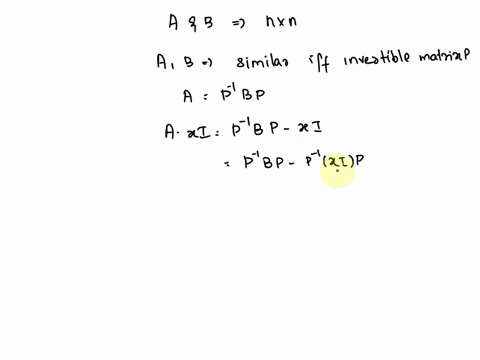 A & B => n×n
A, B => similar iff investible matrix P
A = P⁻¹BP
A - xI = P⁻¹BP - xI
= P⁻¹BP - P⁻¹(xI)P